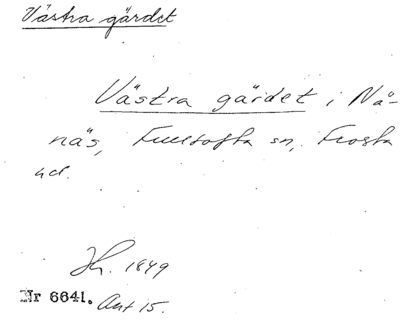 Västra gärdet
Västra gärdet i Nä-
näs, Fulltofta sn, Frosta
hd.
Jh. 1849
Nr 6641. Akt 15.